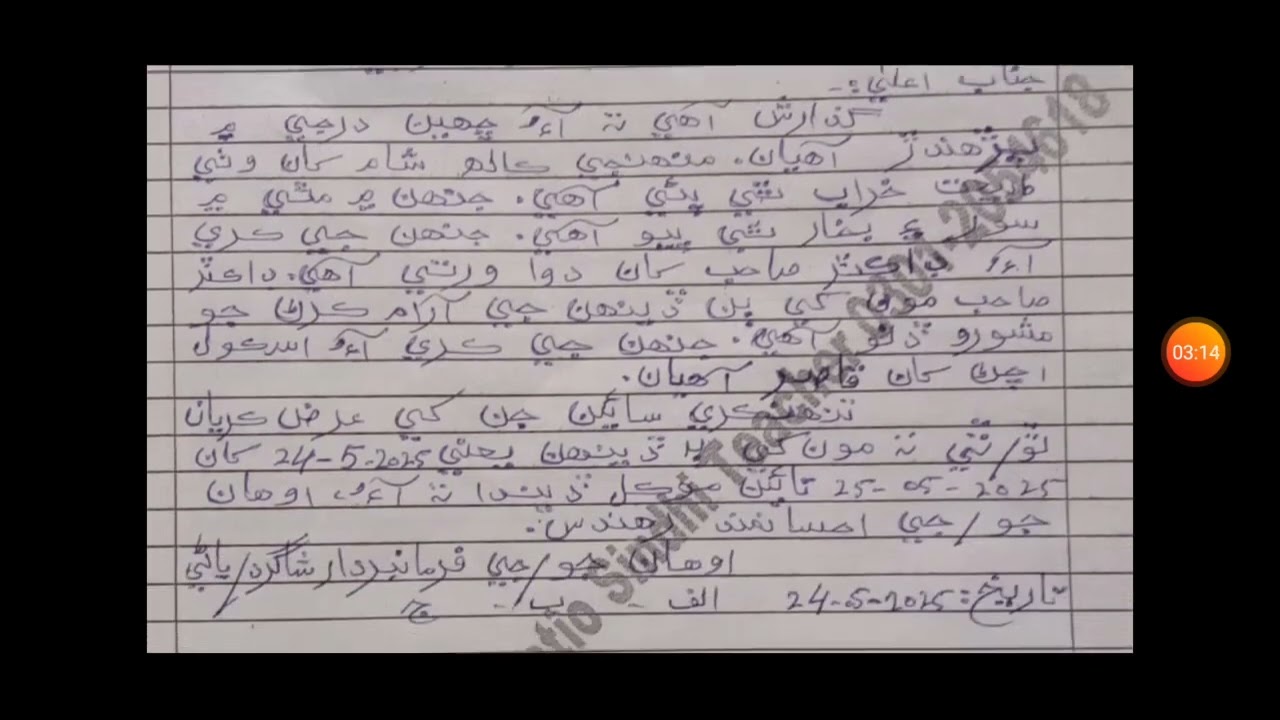 جناب اعليٰ:-
گذارش آهي ته آءٌ ڇهين درجي ۾
پڙهندڙ آهيان. منهنجي ڪالهه شام کان وٺي
طبيعت خراب ٿي پئي آهي. جنهن ۾ مٿي ۾
سور ۽ بخار ٿي پيو آهي. جنهن جي ڪري
آءٌ ڊاڪٽر صاحب کان دوا ورتي آهي. ڊاڪٽر
صاحب مون کي ٻن ڏينهن جي آرام ڪرڻ جو
مشورو ڏنو آهي. جنهن جي ڪري آءٌ اسڪول
اچڻ کان قاصر آهيان.
تنهنڪري سائڻ جن کي عرض ڪريان
ٿو/ٿي ته مون کي ٻه ڏينهن يعني 24-5-2025 کان
25-05-2025 تائين موڪل ڏيندا ته آءٌ اوهان
جو/جي احسانمند رهندس.
اوهان جو/جي فرمانبردار شاگرد/ياڻي
تاريخ: 24-05-2025 الف - ب - ج
Sindhi Teacher 0300-2054618
03:14